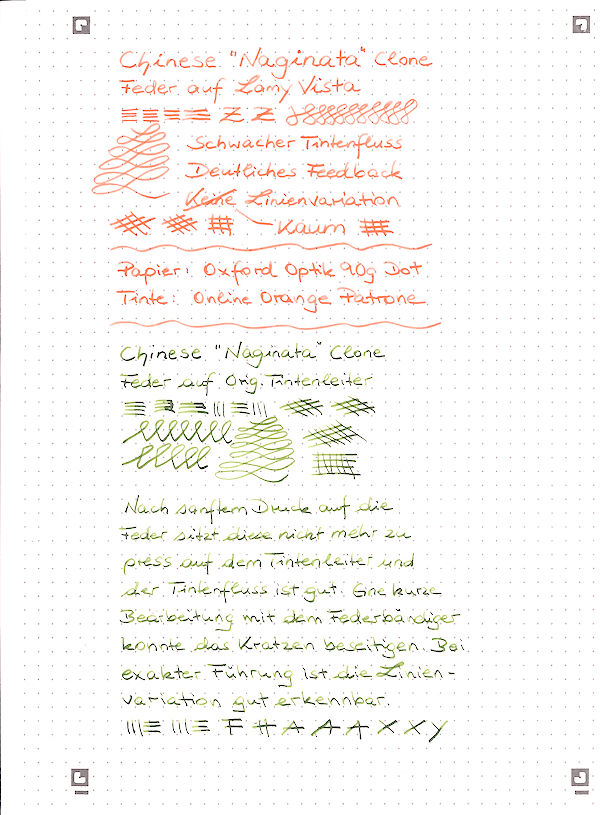 Chinese "Naginata" Clone
Feder auf Lamy Vista
Z Z
Schwacher Tintenfluss
Deutliches Feedback
Keine Linienvariation
Kaum
Papier: Oxford Optik 90g Dot
Tinte: Online Orange Patrone
Chinese "Naginata" Clone
Feder auf Orig. Tintenleiter
Nach sanftem Druck auf die
Feder sitzt diese nicht mehr zu
press auf dem Tintenleiter und
der Tintenfluss ist gut. Eine kurze
Bearbeitung mit dem Federbändiger
konnte das Kratzen beseitigen. Bei
exakter Führung ist die Linien-
variation gut erkennbar.
F H A A A X X Y